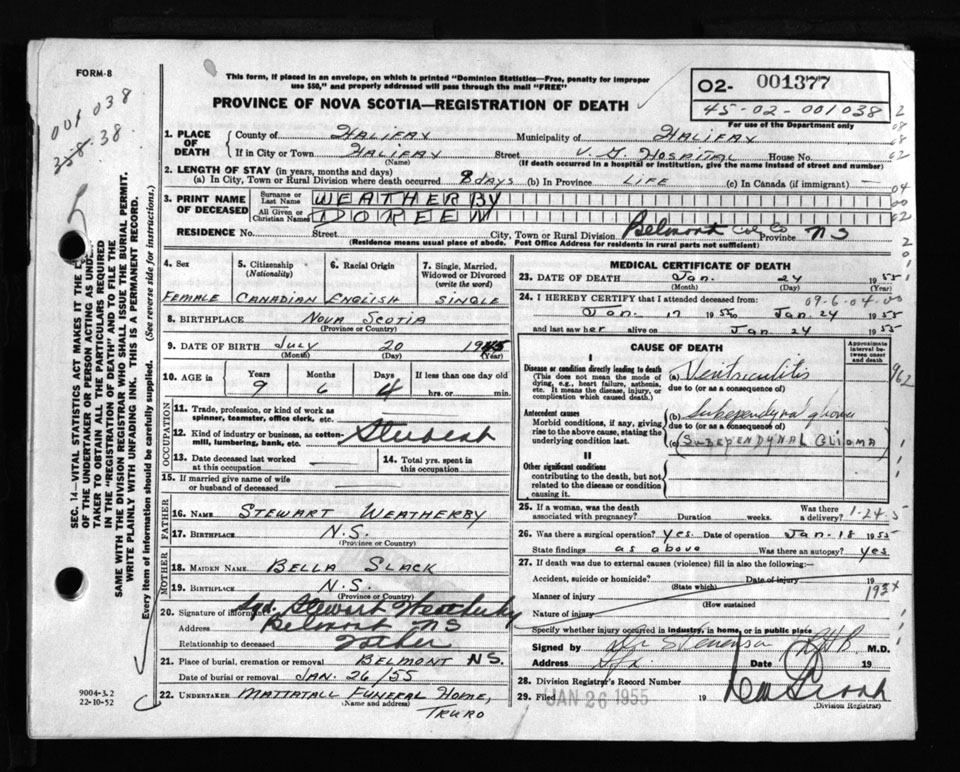 FORM-8
This form, if placed in an envelope, on which is printed "Dominion Statistics—Free, penalty for improper
use $50," and properly addressed will pass through the mail "FREE"
PROVINCE OF NOVA SCOTIA—REGISTRATION OF DEATH
O2- 001377
45-02-001038
For use of the Department only
001038
38
1. PLACE OF DEATH { County of Halifax Municipality of Halifax
If in City or Town Halifax (Name) Street V. G. Hospital House No.
(If death occurred in a hospital or institution, give the name instead of street and number)
2. LENGTH OF STAY (in years, months and days)
(a) In City, Town or Rural Division where death occurred 8 days (b) In Province Life (c) In Canada (if immigrant) —
3. PRINT NAME OF DECEASED { Surname or Last Name WEATHERBY
All Given or Christian Names DOREEN
RESIDENCE No. Street City, Town or Rural Division Belmont Col Co Province NS
(Residence means usual place of abode. Post Office Address for residents in rural parts not sufficient)
4. Sex Female
5. Citizenship (Nationality) Canadian
6. Racial Origin English
7. Single, Married, Widowed or Divorced (write the word) Single
8. BIRTHPLACE Nova Scotia
(Province or Country)
9. DATE OF BIRTH July 20 1945
(Month) (Day) (Year)
10. AGE in { Years 9 Months 6 Days 4 If less than one day old
hrs. or min.
OCCUPATION
11. Trade, profession, or kind of work as
spinner, teamster, office clerk, etc.
12. Kind of industry or business, as cotton-
mill, lumbering, bank, etc. Student
13. Date deceased last worked
at this occupation
14. Total yrs. spent in
this occupation
15. If married give name of wife
or husband of deceased
FATHER
16. NAME Stewart Weatherby
17. BIRTHPLACE N.S.
(Province or Country)
MOTHER
18. MAIDEN NAME Bella Slack
19. BIRTHPLACE N.S.
(Province or Country)
20. Signature of informant Sgd. Stewart Weatherby
Address Belmont NS
Relationship to deceased Father
21. Place of burial, cremation or removal Belmont NS.
Date of burial or removal Jan. 26/55
22. UNDERTAKER Mattatall Funeral Home,
(Name and address) Truro
MEDICAL CERTIFICATE OF DEATH
23. DATE OF DEATH Jan. 24 1955
(Month) (Day)
24. I HEREBY CERTIFY that I attended deceased from:
09-6-04-00
Jan. 17 1955 to Jan. 24 1955
and last saw her alive on Jan. 24 1955
CAUSE OF DEATH
Approximate interval between onset and death
I
Disease or condition directly leading to death
(This does not mean the mode of
dying, e.g., heart failure, asthenia,
etc. It means the disease, injury, or
complication which caused death.)
(a) Ventriculitis
due to (or as a consequence of)
962
Antecedent causes
Morbid conditions, if any, giving
rise to the above cause, stating the
underlying condition last.
(b) Subependymal glioma
due to (or as a consequence of)
(c) (SUBEPENDYNAL GLIOMA)
II
Other significant conditions
contributing to the death, but not
related to the disease or condition
causing it.
25. If a woman, was the death
associated with pregnancy? Duration weeks. Was there a delivery?
1-24-5
26. Was there a surgical operation? Yes. Date of operation Jan. 18 1955
State findings as above Was there an autopsy? Yes
27. If death was due to external causes (violence) fill in also the following:—
Accident, suicide or homicide? Date of injury 19
(State which)
Manner of injury 193x
(How sustained
Nature of injury
Specify whether injury occurred in industry, in home, or in public place
Signed by M.D.
Address Date 19
28. Division Registrar's Record Number
29. Filed JAN 26 1955 19
(Division Registrar)
SEC. 14—VITAL STATISTICS ACT MAKES IT THE
OF THE UNDERTAKER OR PERSON ACTING AS UNDER-
TAKER TO OBTAIN ALL THE PARTICULARS REQUIRED
IN THE "REGISTRATION OF DEATH" AND TO FILE THE
SAME WITH THE DIVISION REGISTRAR WHO SHALL ISSUE THE BURIAL PERMIT.
WRITE PLAINLY WITH UNFADING INK. THIS IS A PERMANENT RECORD.
Every item of information should be carefully supplied. (See reverse side for instructions.)
9004-3.2
22-10-52